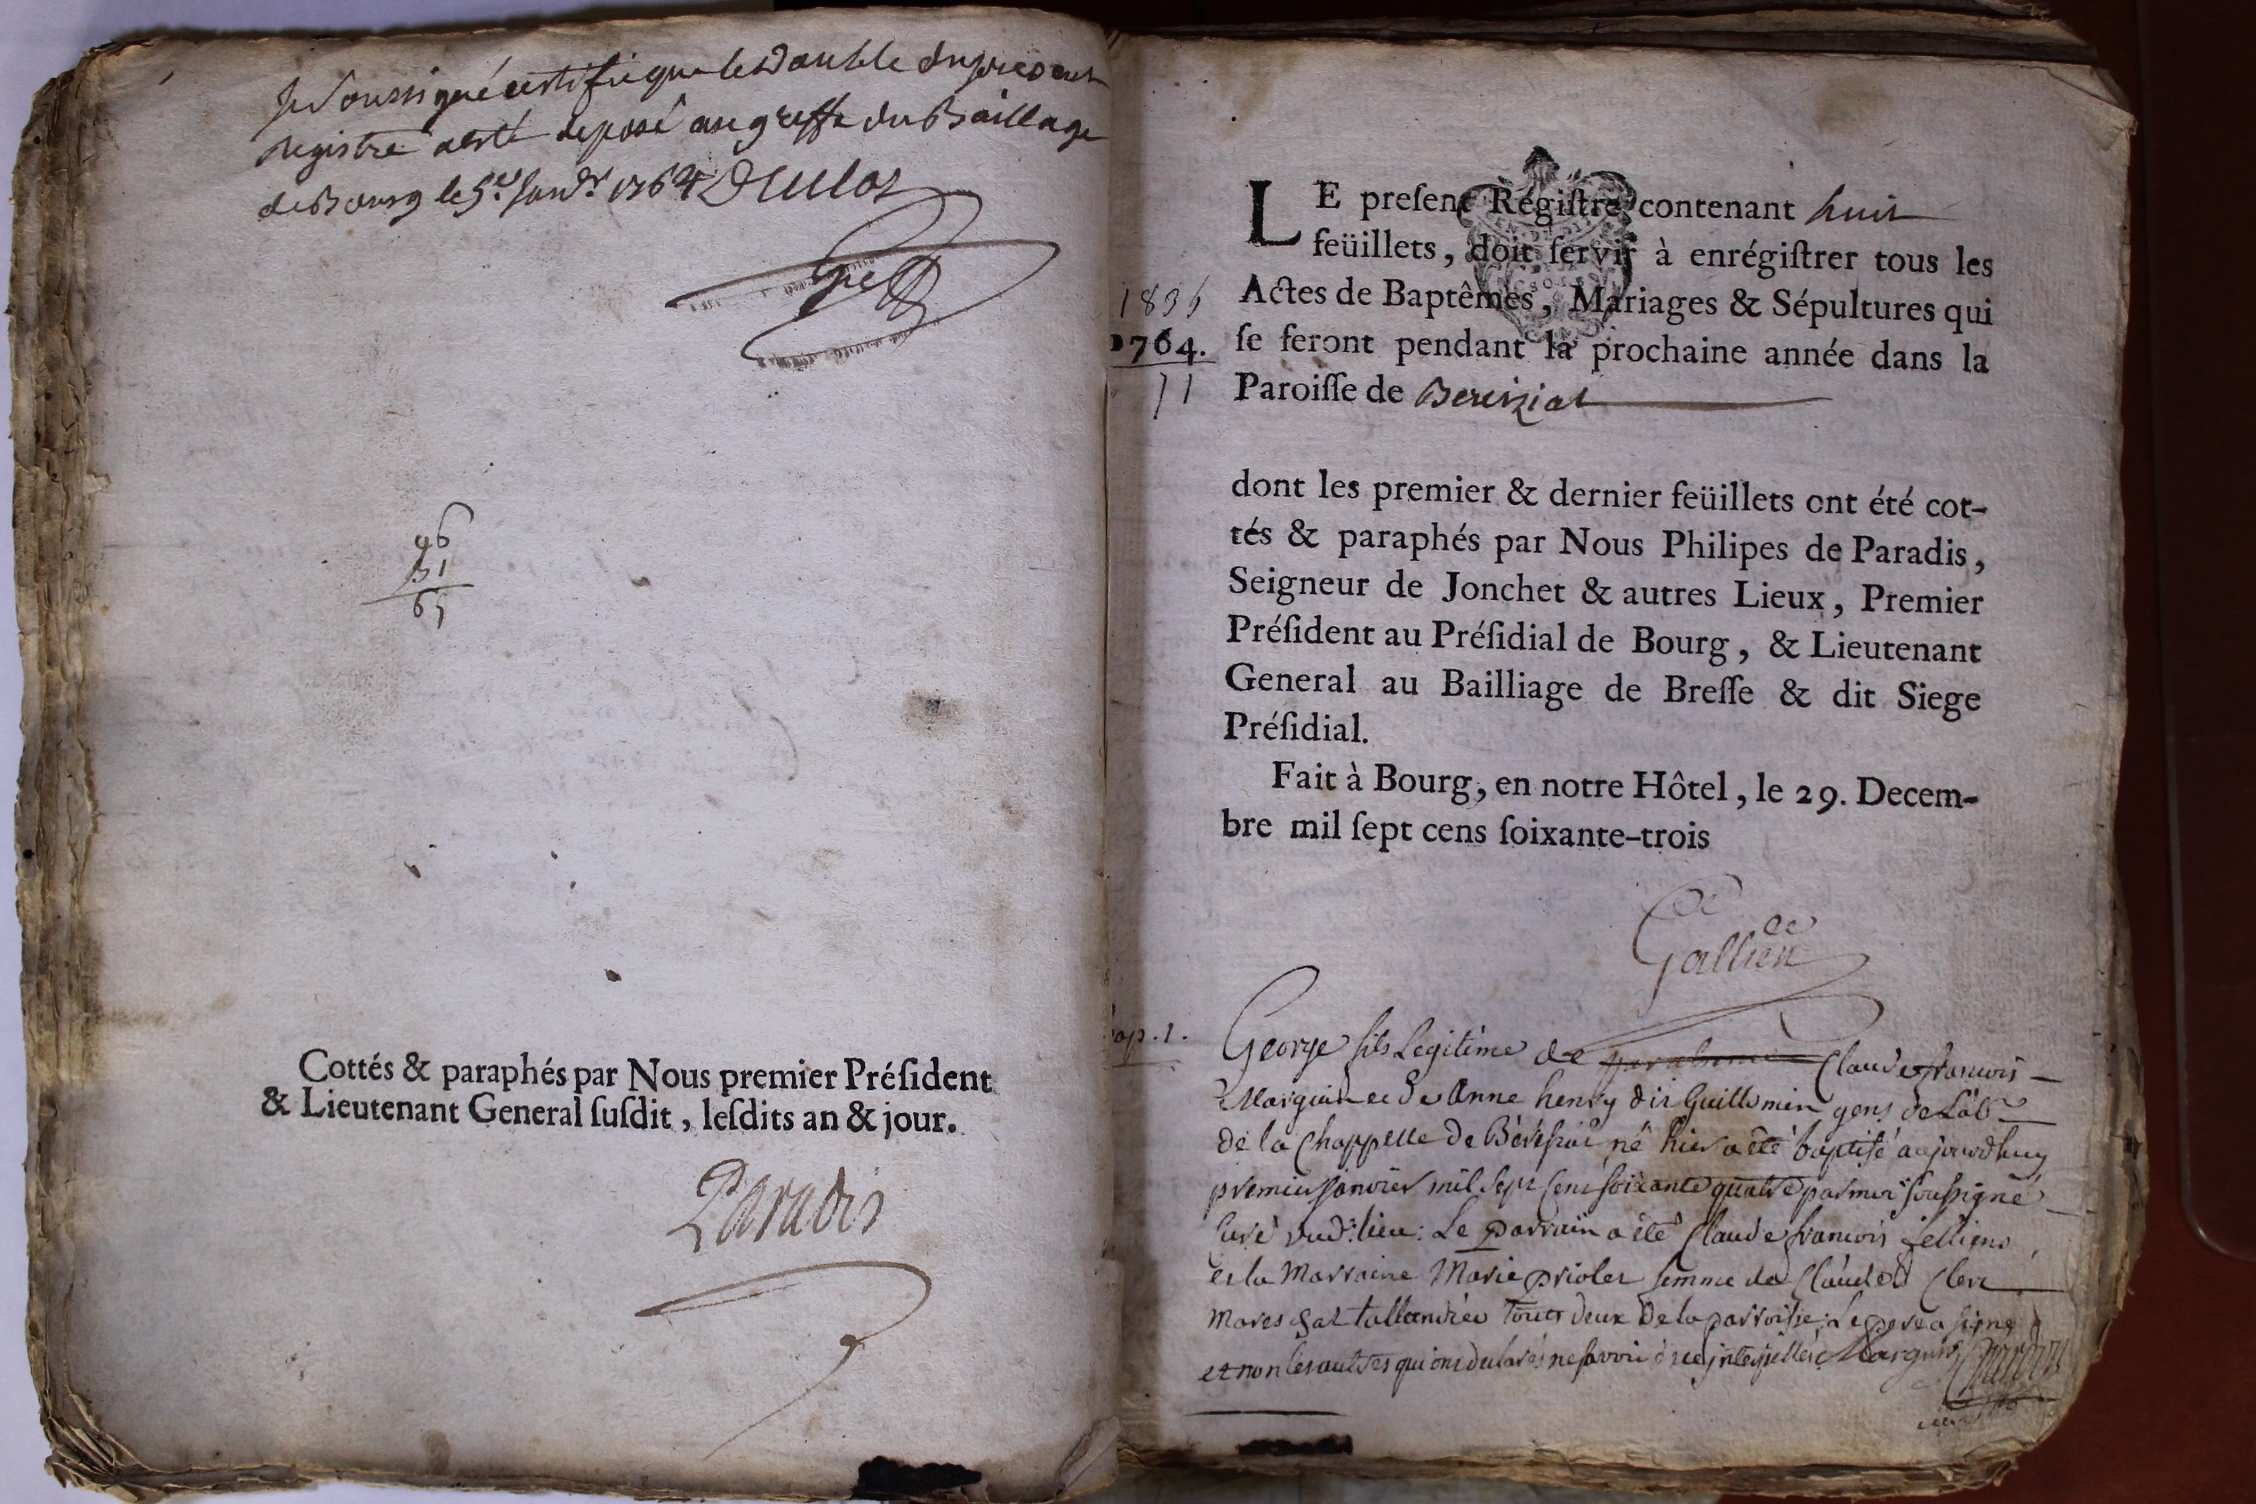 Je soussigné certifie que le double du present
registre a esté deposé au greffe du Baillage
de Bourg le 5.e Janv.r 1764 Duclos
46
31
65
Cottés & paraphés par Nous premier Préſident
& Lieutenant General ſuſdit, leſdits an & jour.
Paradis
LE preſent Régiſtre contenant huit
feüillets, doit ſervir à enrégiſtrer tous les
Actes de Baptêmes, Mariages & Sépultures qui
ſe feront pendant la prochaine année dans la
Paroiſſe de Bereiziat
1835
1764.
71
dont les premier & dernier feüillets ont été cot-
tés & paraphés par Nous Philipes de Paradis,
Seigneur de Jonchet & autres Lieux, Premier
Préſident au Préſidial de Bourg, & Lieutenant
General au Bailliage de Breſſe & dit Siege
Préſidial.
Fait à Bourg, en notre Hôtel, le 29. Decem-
bre mil ſept cens ſoixante-trois
de
Gallien
bap. 1.
George fils Legitime de Claude francois
Marguin et de Anne henry dit Guillomin gens de Lab.r
de la Chappelle de Béresiat né hier a été baptisé aujourdhuy
premier janvier mil sept cent soixante quatre par moi soussigné
curé dud. lieu: Le parrain a été Claude francois
et la Marraine Marie priolet femme de Claude Clerc
tallandier tous deux de la parroisse; Le pere a signé
et non les aultres qui ont declarés ne savoir de ce jnterpellés Marguin